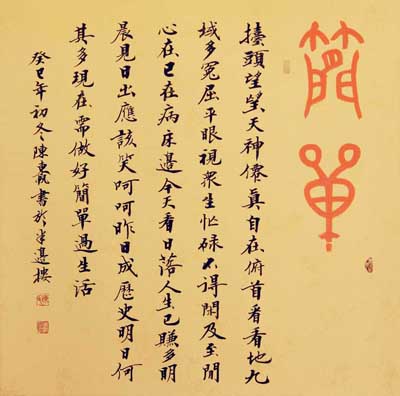 簡單
擡頭望望天神僊真自在俯首看看地九
域多冤屈平眼視眾生忙碌不得閑及至閒
心在已在病床邊今天看日落人生已賺多明
晨見日出應該笑呵呵昨日成歷史明日何
其多現在需做好簡單過生活
癸巳年初冬陳書於半邊樓